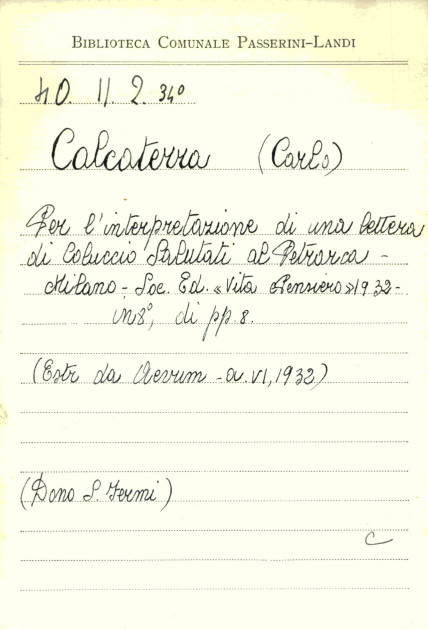 BIBLIOTECA COMUNALE PASSERINI-LANDI
40. 11. 2. 34°
Calcaterra (Carlo)
Per l'interpretazione di una lettera
di Coluccio Salutati al Petrarca -
Milano - Soc. Ed. «Vita Pensiero» 1932 -
in 8°, di pp. 8.
(Estr da Aevum - a. VI, 1932)
(Dono S. Fermi)
C